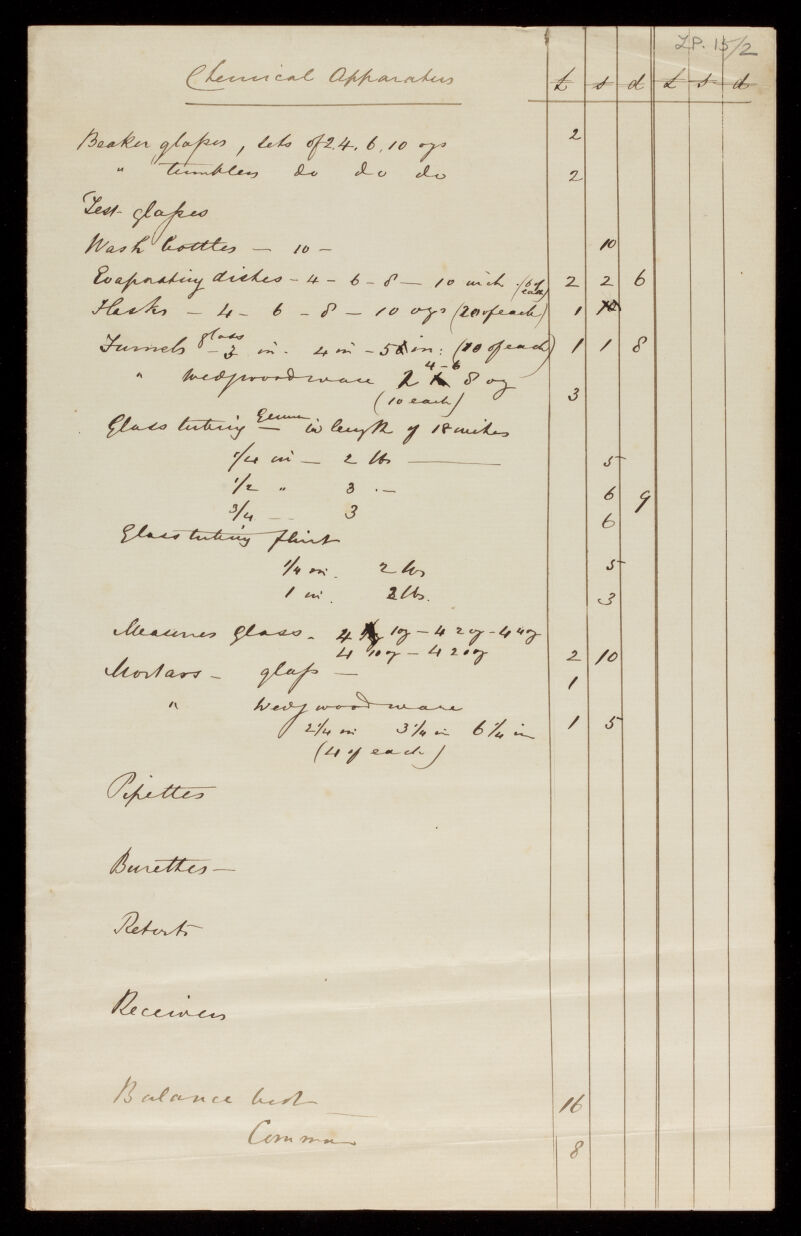 LP. 15/2
Chemical Apparatus £ s d £ s d
Beaker glasses, sets of 2.4. 6, 10 ozs 2
" tumblers do do do 2
Test glasses
Wash bottles — 10 — 10
Evaporating dishes - 4 - 6 - 8 — 10 inch. (6 of each) 2 2 6
Flasks — 4 - 6 - 8 — 10 ozs (20 of each) 1
Funnels glass - 3 in - 4 in - 5 in: (10 of each) 1 1 8
" Wedgwoodware 2 4-6 8 oz
(10 each) 3
Glass tubing German in length of 18 inches
1/4 in — 2 lbs — 5
1/2 " 3 — 6 9
3/4 — 3 6
Glass tubing flint
1/4 in. 2 lbs 5
1 in. 2 lbs. 3
Measures Glass - 4 1oz - 4 2oz - 4 4oz
4 10oz - 4 20oz 2 10
Mortars - glass — 1
" Wedgwoodware
2 1/4 in 3 1/4 in 6 1/4 in 1 5
(4 of each)
Pipettes
Burettes —
Retorts
Receivers
Balance best 16
Common 8